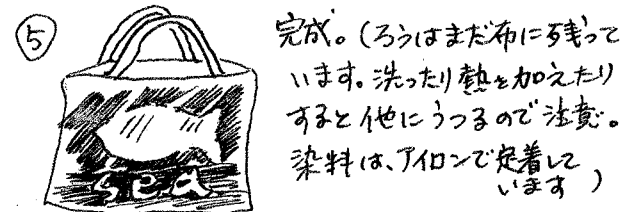 ⑤
完成。(ろうはまだ布に残って
います。洗ったり熱を加えたり
すると他にうつるので注意。
染料は、アイロンで定着して
います)